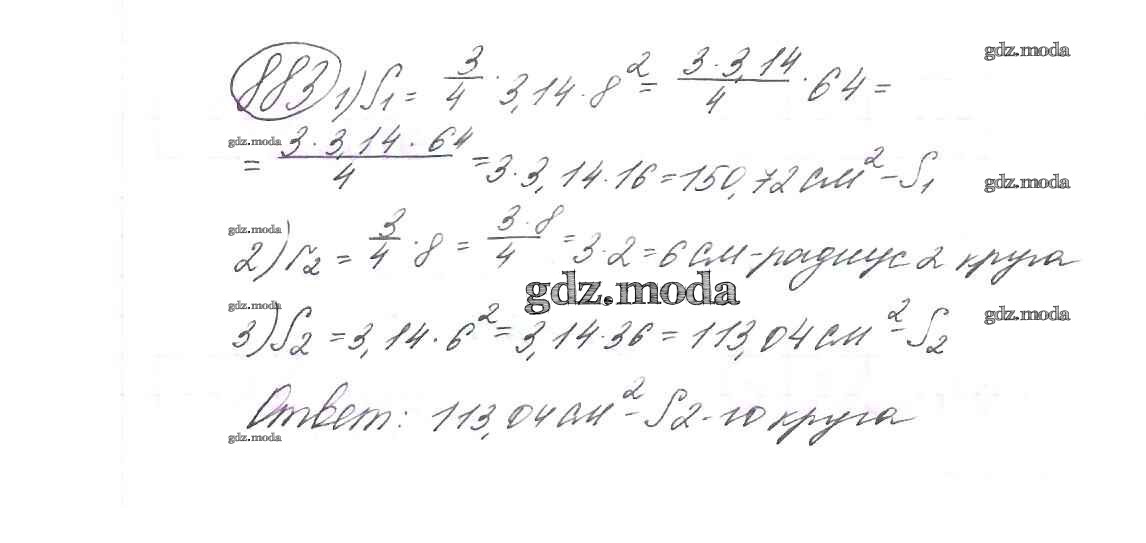 gdz.moda
883 1) S₁ = 3/4 · 3,14 · 8² = 3·3,14/4 · 64 =
gdz.moda
= 3·3,14·64/4 = 3·3,14·16 = 150,72 см² - S₁
gdz.moda
gdz.moda
2) r₂ = 3/4 · 8 = 3·8/4 = 3·2 = 6 см - радиус 2 круга
gdz.moda
gdz.moda
gdz.moda
3) S₂ = 3,14 · 6² = 3,14·36 = 113,04 см² - S₂
Ответ: 113,04 см² - S 2-го круга
gdz.moda